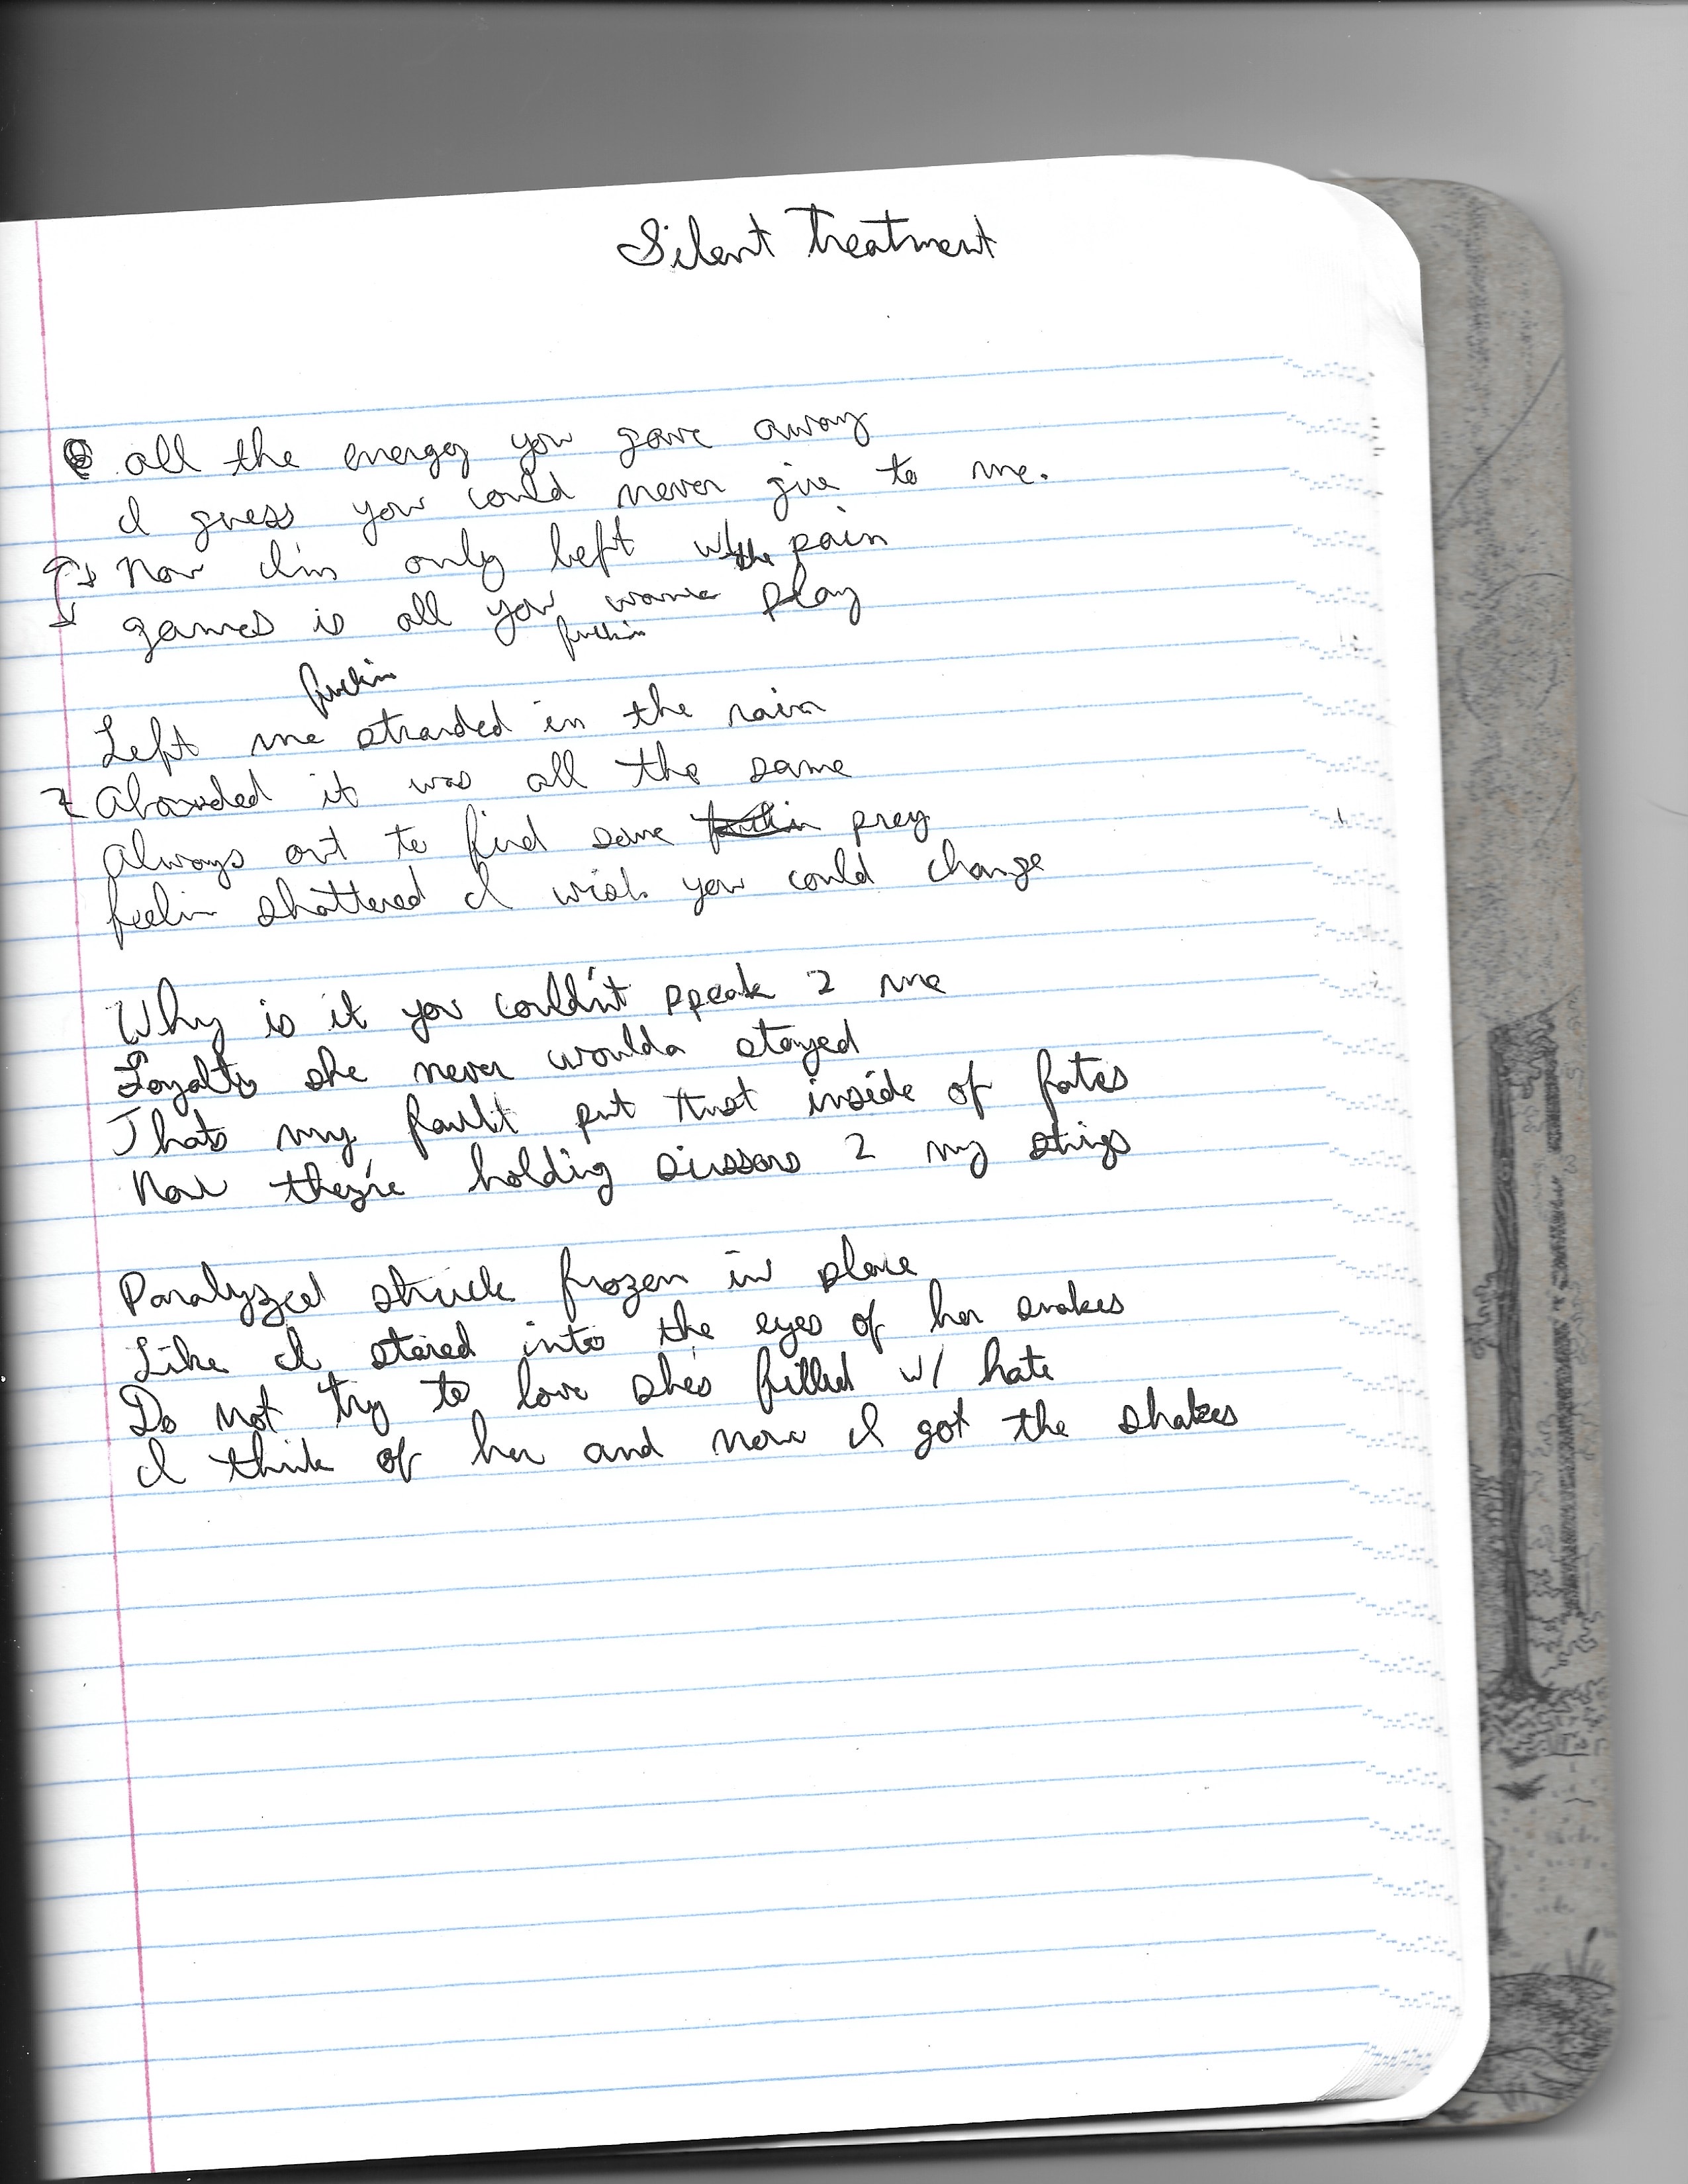 Silent Treatment
all the energy you gave away
I guess you could never give to me.
Now I'm only left w/ the pain
games is all you wanna play
fuckin
fuckin
Left me stranded in the rain
it was all the same
always out to find some fuckin prey
feelin shattered I wish you could change
Why is it you couldn't speak 2 me
Loyalty she never woulda stayed
Thats my fault put trust inside of fates
Now they're holding scissors 2 my strings
Paralyzed struck frozen in place
Like I stared into the eyes of her snakes
Do not try to love she's filled w/ hate
I think of her and now I got the shakes